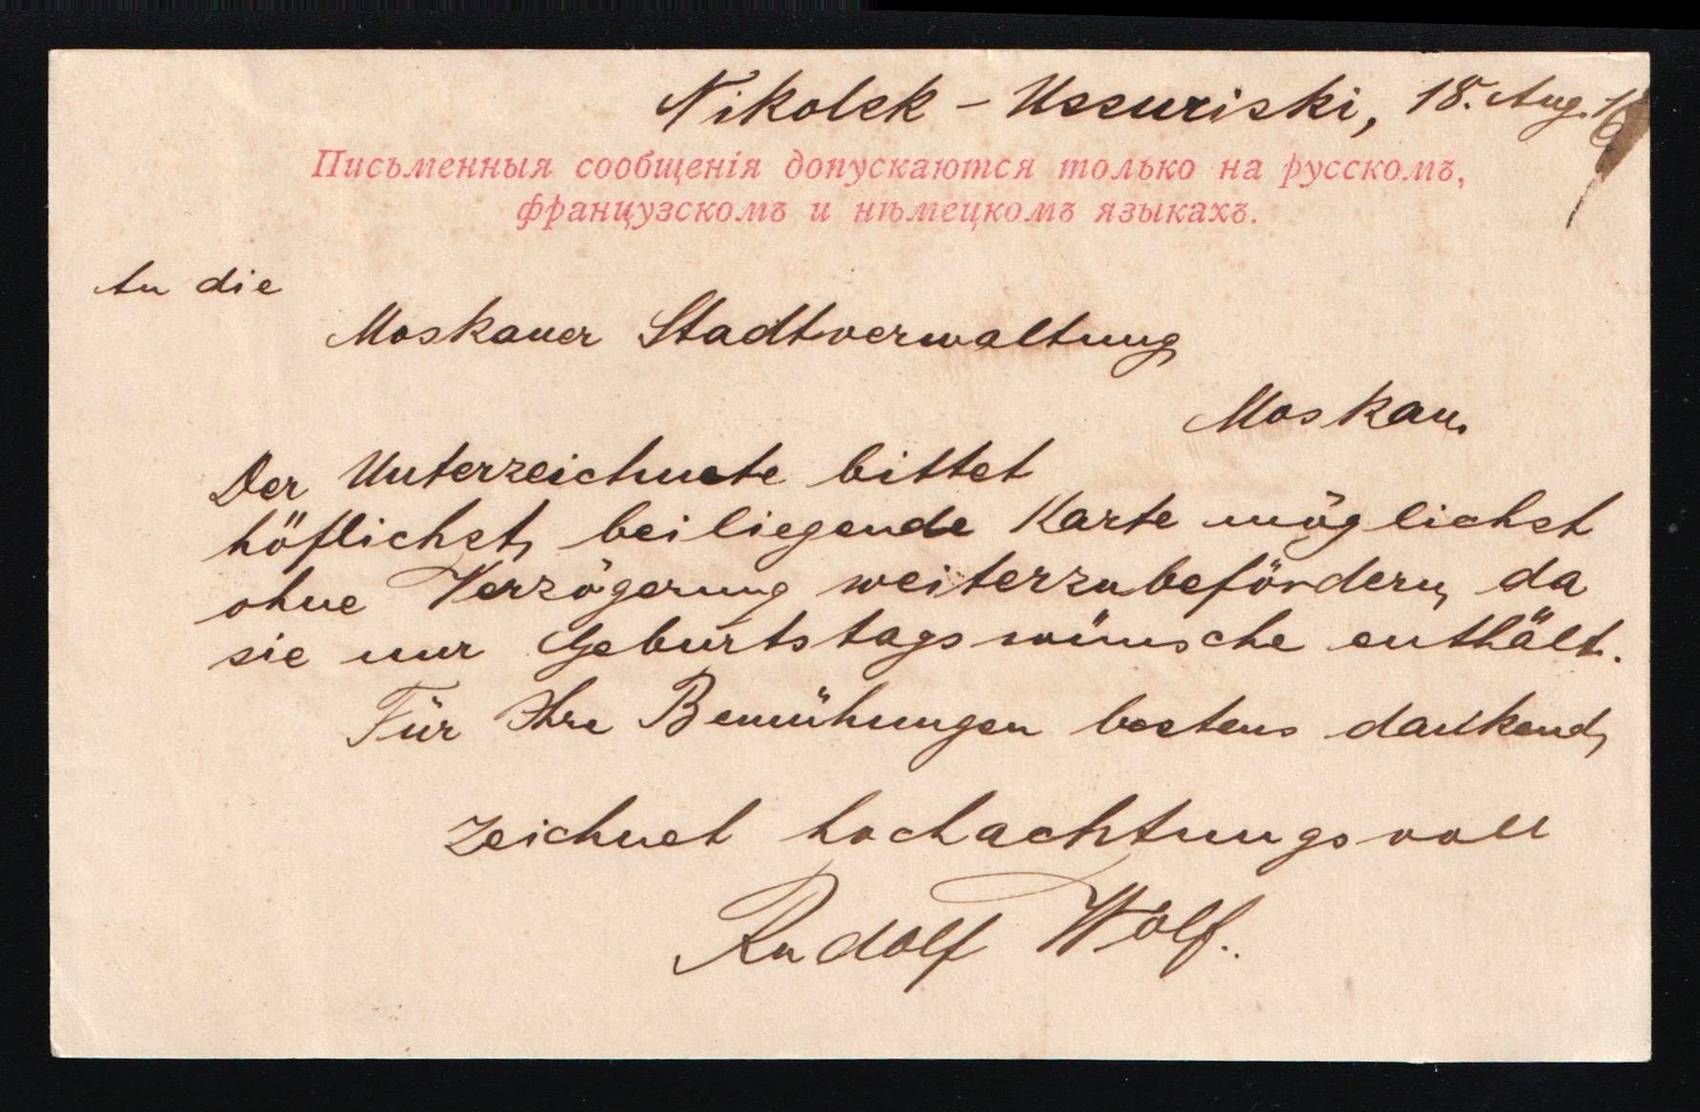 Nikolsk - Ussuriski, 18. Aug. 16
Письменныя сообщенія допускаются только на русскомъ,
французскомъ и нѣмецкомъ языкахъ.
An die
Moskauer Stadtverwaltung
Moskau.
Der Unterzeichnete bittet
höflichst, beiliegende Karte möglichst
ohne Verzögerung weiterzubefördern, da
sie nur Geburtstagswünsche enthält.
Für Ihre Bemühungen bestens dankend,
zeichnet hochachtungsvoll
Rudolf Wolf.